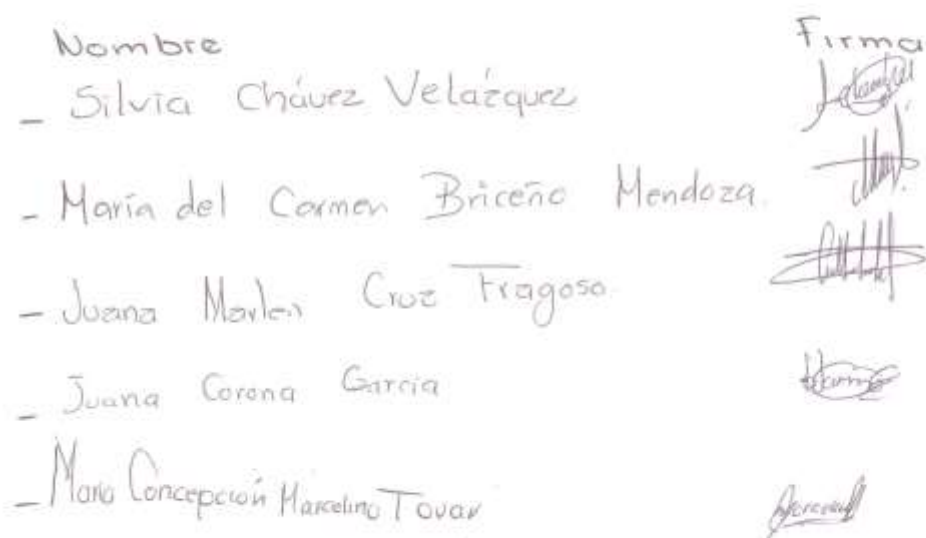 Nombre Firma
- Silvia Chávez Velázquez
- María del Carmen Briceño Mendoza.
- Juana Marlen Cruz Fragoso.
- Juana Corona Garcia
- Maria Concepción Marcelino Tovar